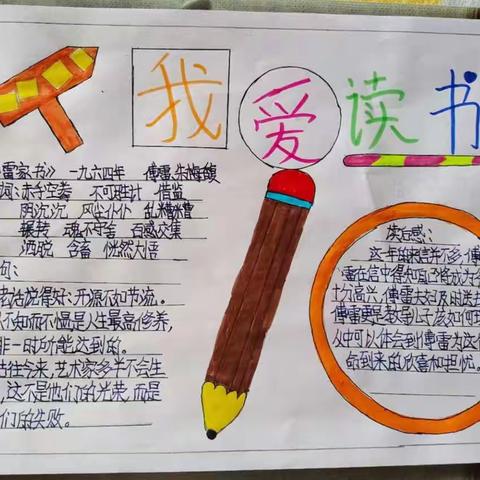 我爱读书
雷家书》 一九六四年 傅雷朱梅馥
词:赤手空拳 不可胜计 借鉴
阴沉沉 风尘仆仆 乱糟糟
辗转 魂不守舍 百感交集
洒脱 含畜 恍然大悟
句:
老姑说得好:开源不如节流。
不知而不愠是人生最高修养,
非一时所能达到的。
古往今来,艺术家多半不会生
,这不是他们的光荣,而是
们的失败。
读后感:
这一年的来信并不多,傅
雷在信中得知自己将成为
十分高兴,傅雷夫妇及时送去
傅雷更是教导儿子该如何
从中可以体会到傅雷为这
命到来的欣喜和担忧。